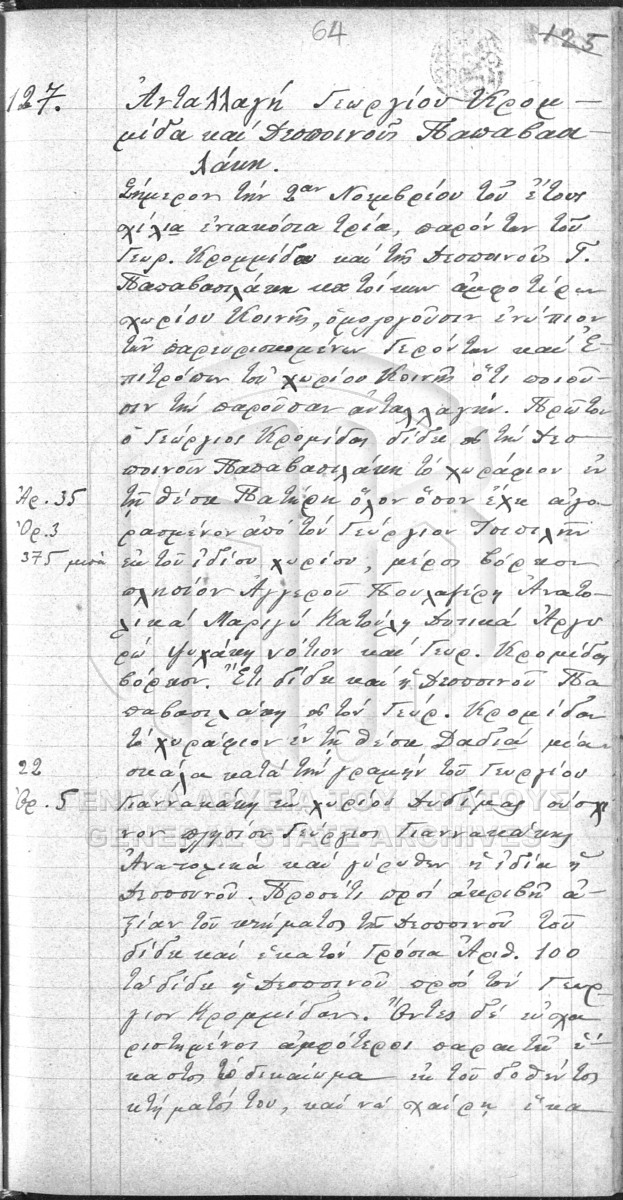 64
125
127. Ἀνταλλαγή Γεωργίου Κρομ-
μίδα καί Δεσποινοῦς Παπαβασι-
λάκη.
Σήμερον τήν 2αν Νοεμβρίου τοῦ ἔτους
χίλια ἐνιακόσια τρία, παρόντων τοῦ
Γεωρ. Κρομμίδα καί τῆς Δεσποινοῦς Γ.
Παπαβασιλάκη κατοίκων ἀμφοτέρων
χωρίου Κοινῆς, ὁμολογοῦσιν ἐνώπιον
τῶν παρευρισκομένων Γερόντων καί Ἐ-
πιτρόπων τοῦ χωρίου Κοινῆς ὅτι ποιοῦ-
σιν τήν παροῦσαν ἀνταλλαγήν. Πρῶτον
ὁ Γεώργιος Κρομίδας δίδει τήν Δεσ-
ποινοῦν Παπαβασιλάκη τό χωράφιον ἐν
Ἀρ. 35 τῇ θέσει Πατήρη ὅλον ὅπου ἔχει ἀγο-
Ὁρ. 3 ρασμένον ἀπό τόν Γεώργιον
375 ἐκ τοῦ ἰδίου χωρίου, μέρος βόρειον
πλησίον Πουλαγέρη Ἀνατο-
λικά Μαριγώ Κατούλη Δυτικά Ἀργυ-
ρώ Ψυλάκη νότιον καί Γεωρ. Κρομίδας
βόρειον. Ἔτι δίδει καί ἡ Δεσποινοῦ Πα-
παβασιλάκη τόν Γεώρ. Κρομίδαν
τό χωράφιον ἐν τῇ θέσει Δαδιά μία
22 σκάλα κατά τήν γραμμήν τοῦ Γεωργίου
Ὁρ. 5 Γιαννακάκη ἐκ χωρίου Διδύμας
πλησίον Γεώργιος Γιαννακάκης
Ἀνατολικά καί γύρωθεν ἡ ἰδία ἡ
Δεσποινοῦ. Προσέτι πρός ἀκριβῆ ἀ-
ξίαν τοῦ κτήματος τῆς Δεσποινοῦ τοῦ
δίδει καί ἑκατόν Γρόσια Ἀριθ. 100
τά δίδει ἡ Δεσποινοῦ πρός τόν Γεώρ-
γιον Κρομμίδαν. Ὄντες δέ εὐχα-
ριστημένοι ἀμφότεροι παραιτεῖ ἕ-
καστος τό δικαίωμα ἐκ τοῦ δοθέντος
κτήματός του, καί νά χαίρῃ ἕκα
ΓΕΝΙΚΑ ΑΡΧΕΙΑ ΤΟΥ ΚΡΑΤΟΥΣ
GENERAL STATE ARCHIVES